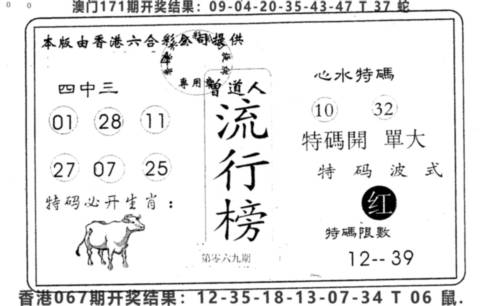 澳门171期开奖结果：09-04-20-35-43-47 T 37 蛇
本版由香港六合彩公司提供
專用章
四中三
01 28 11
27 07 25
特码必开生肖：
曾道人
流行榜
第零六九期
心水特碼
10 32
特碼開 單大
特码波式
红
特碼限數
12--39
香港067期开奖结果：12-35-18-13-07-34 T 06 鼠.